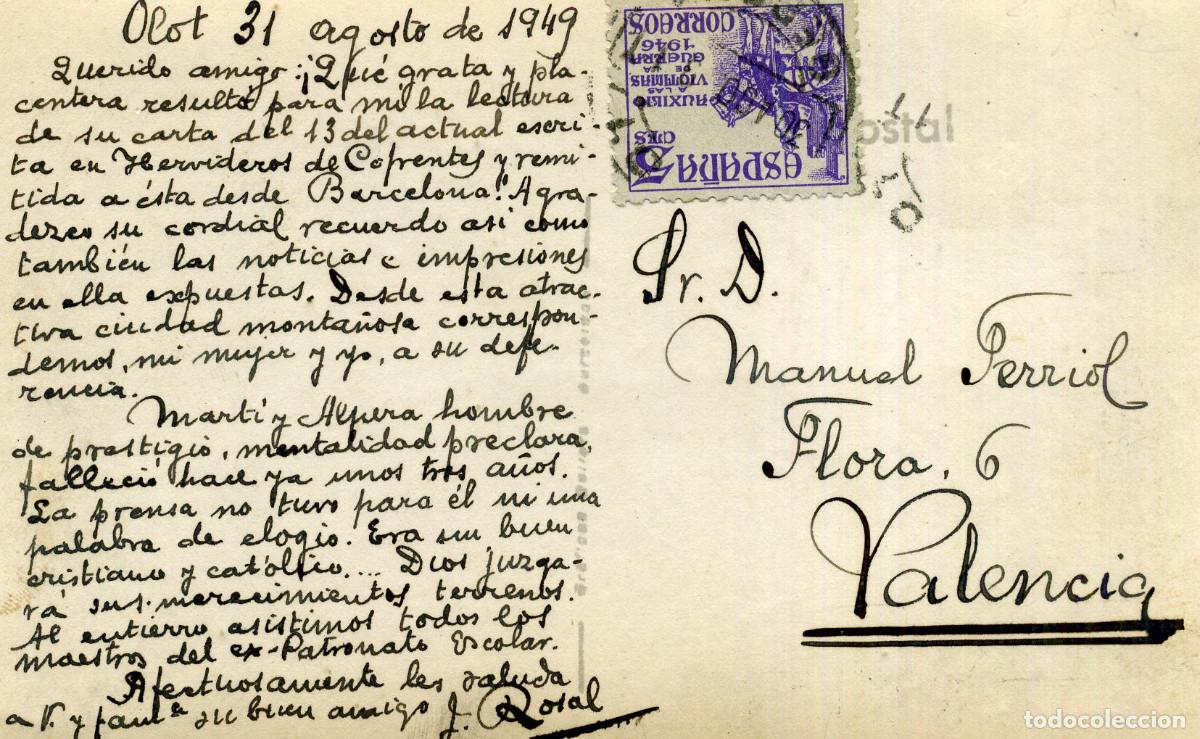 Olot 31 agosto de 1949
Querido amigo: ¡Qué grata y pla-
centera resultó para mi la lectura
de su carta del 13 del actual escri-
ta en Hervideros de Cofrentes y remi-
tida a ésta desde Barcelona! Agra-
dezco su cordial recuerdo asi como
también las noticias e impresiones
en ella expuestas. Desde esta atrac-
tiva ciudad montañosa correspon-
demos, mi mujer y yo, a su defe-
rencia.
Martí y Alpera hombre
de prestigio, mentalidad preclara,
falleció hace ya unos tres años.
La prensa no tuvo para él ni una
palabra de elogio. Era un buen
cristiano y católico.... Dios juzga-
rá sus merecimientos terrenos.
Al entierro asistimos todos los
maestros del ex-Patronato Escolar.
Afectuosamente les saluda
a V. y famª su buen amigo J. Rosal
ESPAÑA
5 CTS
AUXILIO
A LAS
VICTIMAS
DE LA
GUERRA
1946
CORREOS
Postal
Sr. D.
Manuel Ferriol
Flora, 6
Valencia
todocoleccion